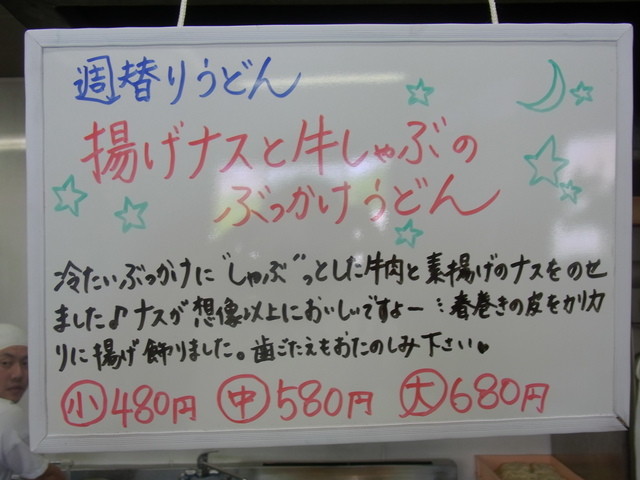 週替りうどん
揚げナスと牛しゃぶの
ぶっかけうどん
冷たいぶっかけに"しゃぶ"っとした牛肉と素揚げのナスをのせ
ました♪ナスが想像以上においしいですよー 春巻きの皮をカリカ
リに揚げ飾りました。歯ごたえもおたのしみ下さい♥
小480円 中580円 大680円